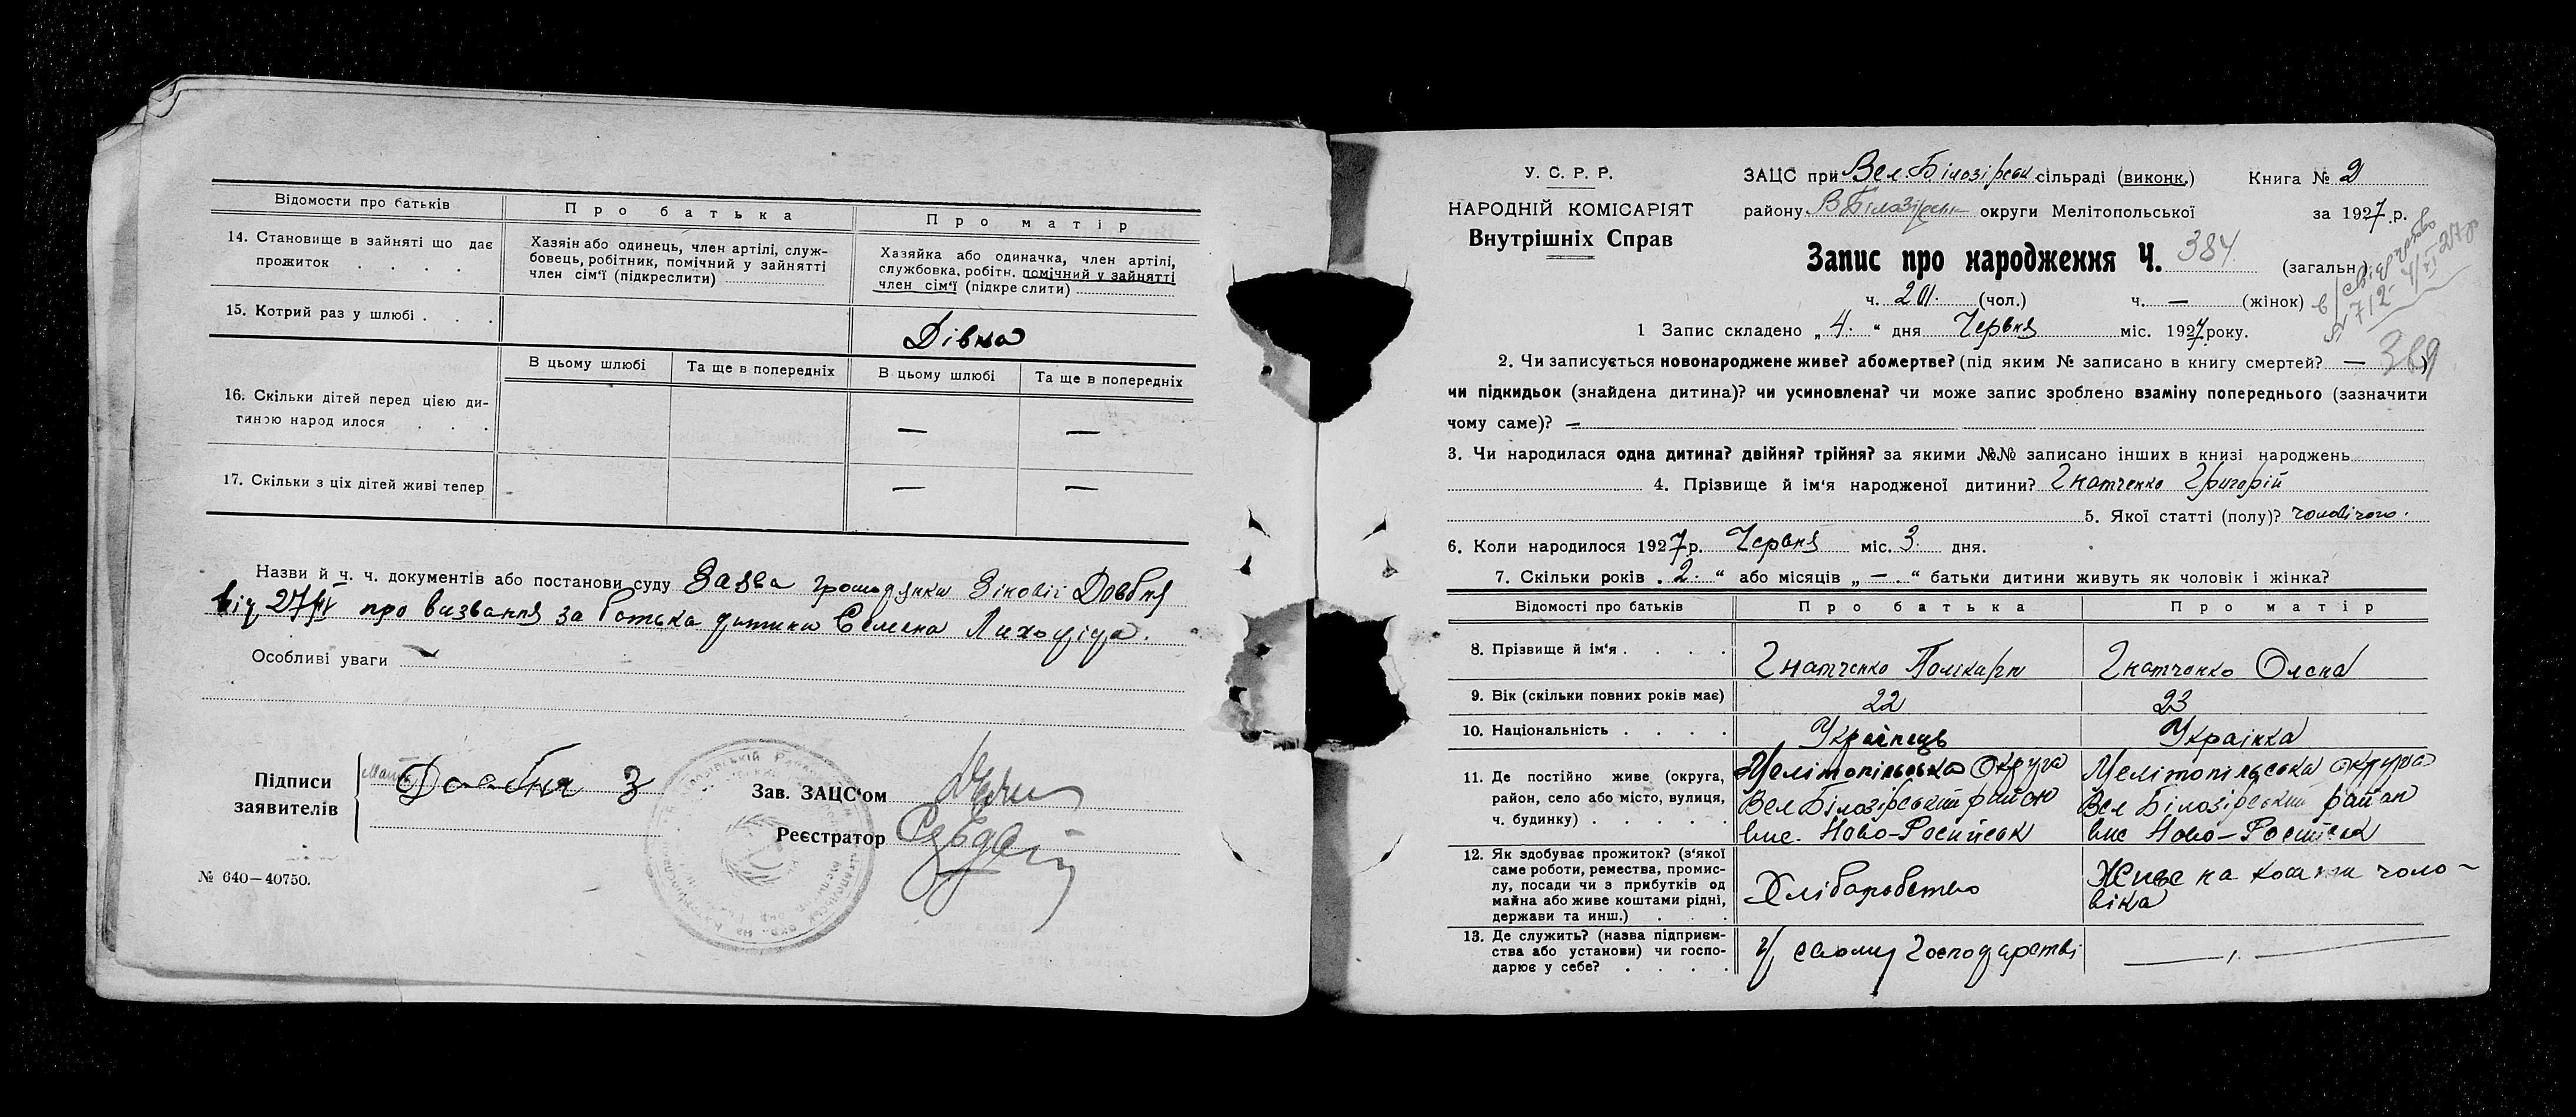 Відомости про батьків
Про батька
Про матір
14. Становище в зайняті що дає
прожиток . . . .
Хазяін або одинець, член артілі, служ-
бовець, робітник, помічний у зайнятті
член сім'ї (підкреслити)
Хазяйка або одиначка, член артілі,
службовка, робітн. помічний у зайнятті
член сім'ї (підкреслити)
15. Котрий раз у шлюбі . . .
Дівка
В цьому шлюбі
Та ще в попередніх
В цьому шлюбі
Та ще в попередніх
16. Скільки дітей перед цією ди-
тиною народилося . . .
— —
17. Скільки з ціх дітей живі тепер
— —
Назви й ч. ч. документів або постанови суду Заява громадянки Зіновії Довбня
від 27/IV про визвання за батька дитини Семена Лиходіда.
Особливі уваги —
Підписи
заявителів
Довбня З
Зав. ЗАЦС'ом
Реєстратор
№ 640—40750.
У. С. Р. Р.
НАРОДНІЙ КОМІСАРІЯТ
Внутрішніх Справ
ЗАЦС при Вел.Білозірськ. сільраді (виконк.) Книга № 2
району В Білозірськ округи Мелітопольської за 1927 р.
Запис про народження Ч. 384 (загальн.)
ч. 201. (чол.) ч. — (жінок)
№ 712
1 Запис складено „ 4. “ дня Червня міс. 1927 року.
389
2. Чи записується новонароджене живе? або мертве? (під яким № записано в книгу смертей? — )
чи підкидьок (знайдена дитина)? чи усиновлена? чи може запис зроблено взаміну попереднього (зазначити
чому саме)? —
3. Чи народилася одна дитина? двійня? трійня? за якими №№ записано інших в книзі народжень
4. Прізвище й ім'я народженої дитини? Гнатченко Григорій
5. Якої статті (полу)? чоловічого.
6. Коли народилося 1927 р. Червня міс. 3. дня.
7. Скільки років „ 2. “ або місяців „ — “ батьки дитини живуть як чоловік і жінка?
Відомості про батьків
Про батька
Про матір
8. Прізвище й ім'я . . . .
Гнатченко Полікарп
Гнатченко Олена
9. Вік (скільки повних років має)
22
23
10. Національність . . . .
Українець
Українка
11. Де постійно живе (округа,
район, село або місто, вулиця,
ч. будинку) . . . . .
Мелітопільська Округа
Вел Білозірський район
вис. Ново-Росийськ
Мелітопільська округа
Вел Білозірський район
вис Ново-Росийськ
12. Як здобуває прожиток? (з'якої
саме роботи, ремества, промис-
лу, посади чи з прибутків од
майна або живе коштами рідні,
держави та инш.) . . .
Хліборобство
Живе на кошти чоло-
віка
13. Де служить? (назва підприєм-
ства або установи) чи госпо-
дарює у себе? . . . .
у своему господарстві